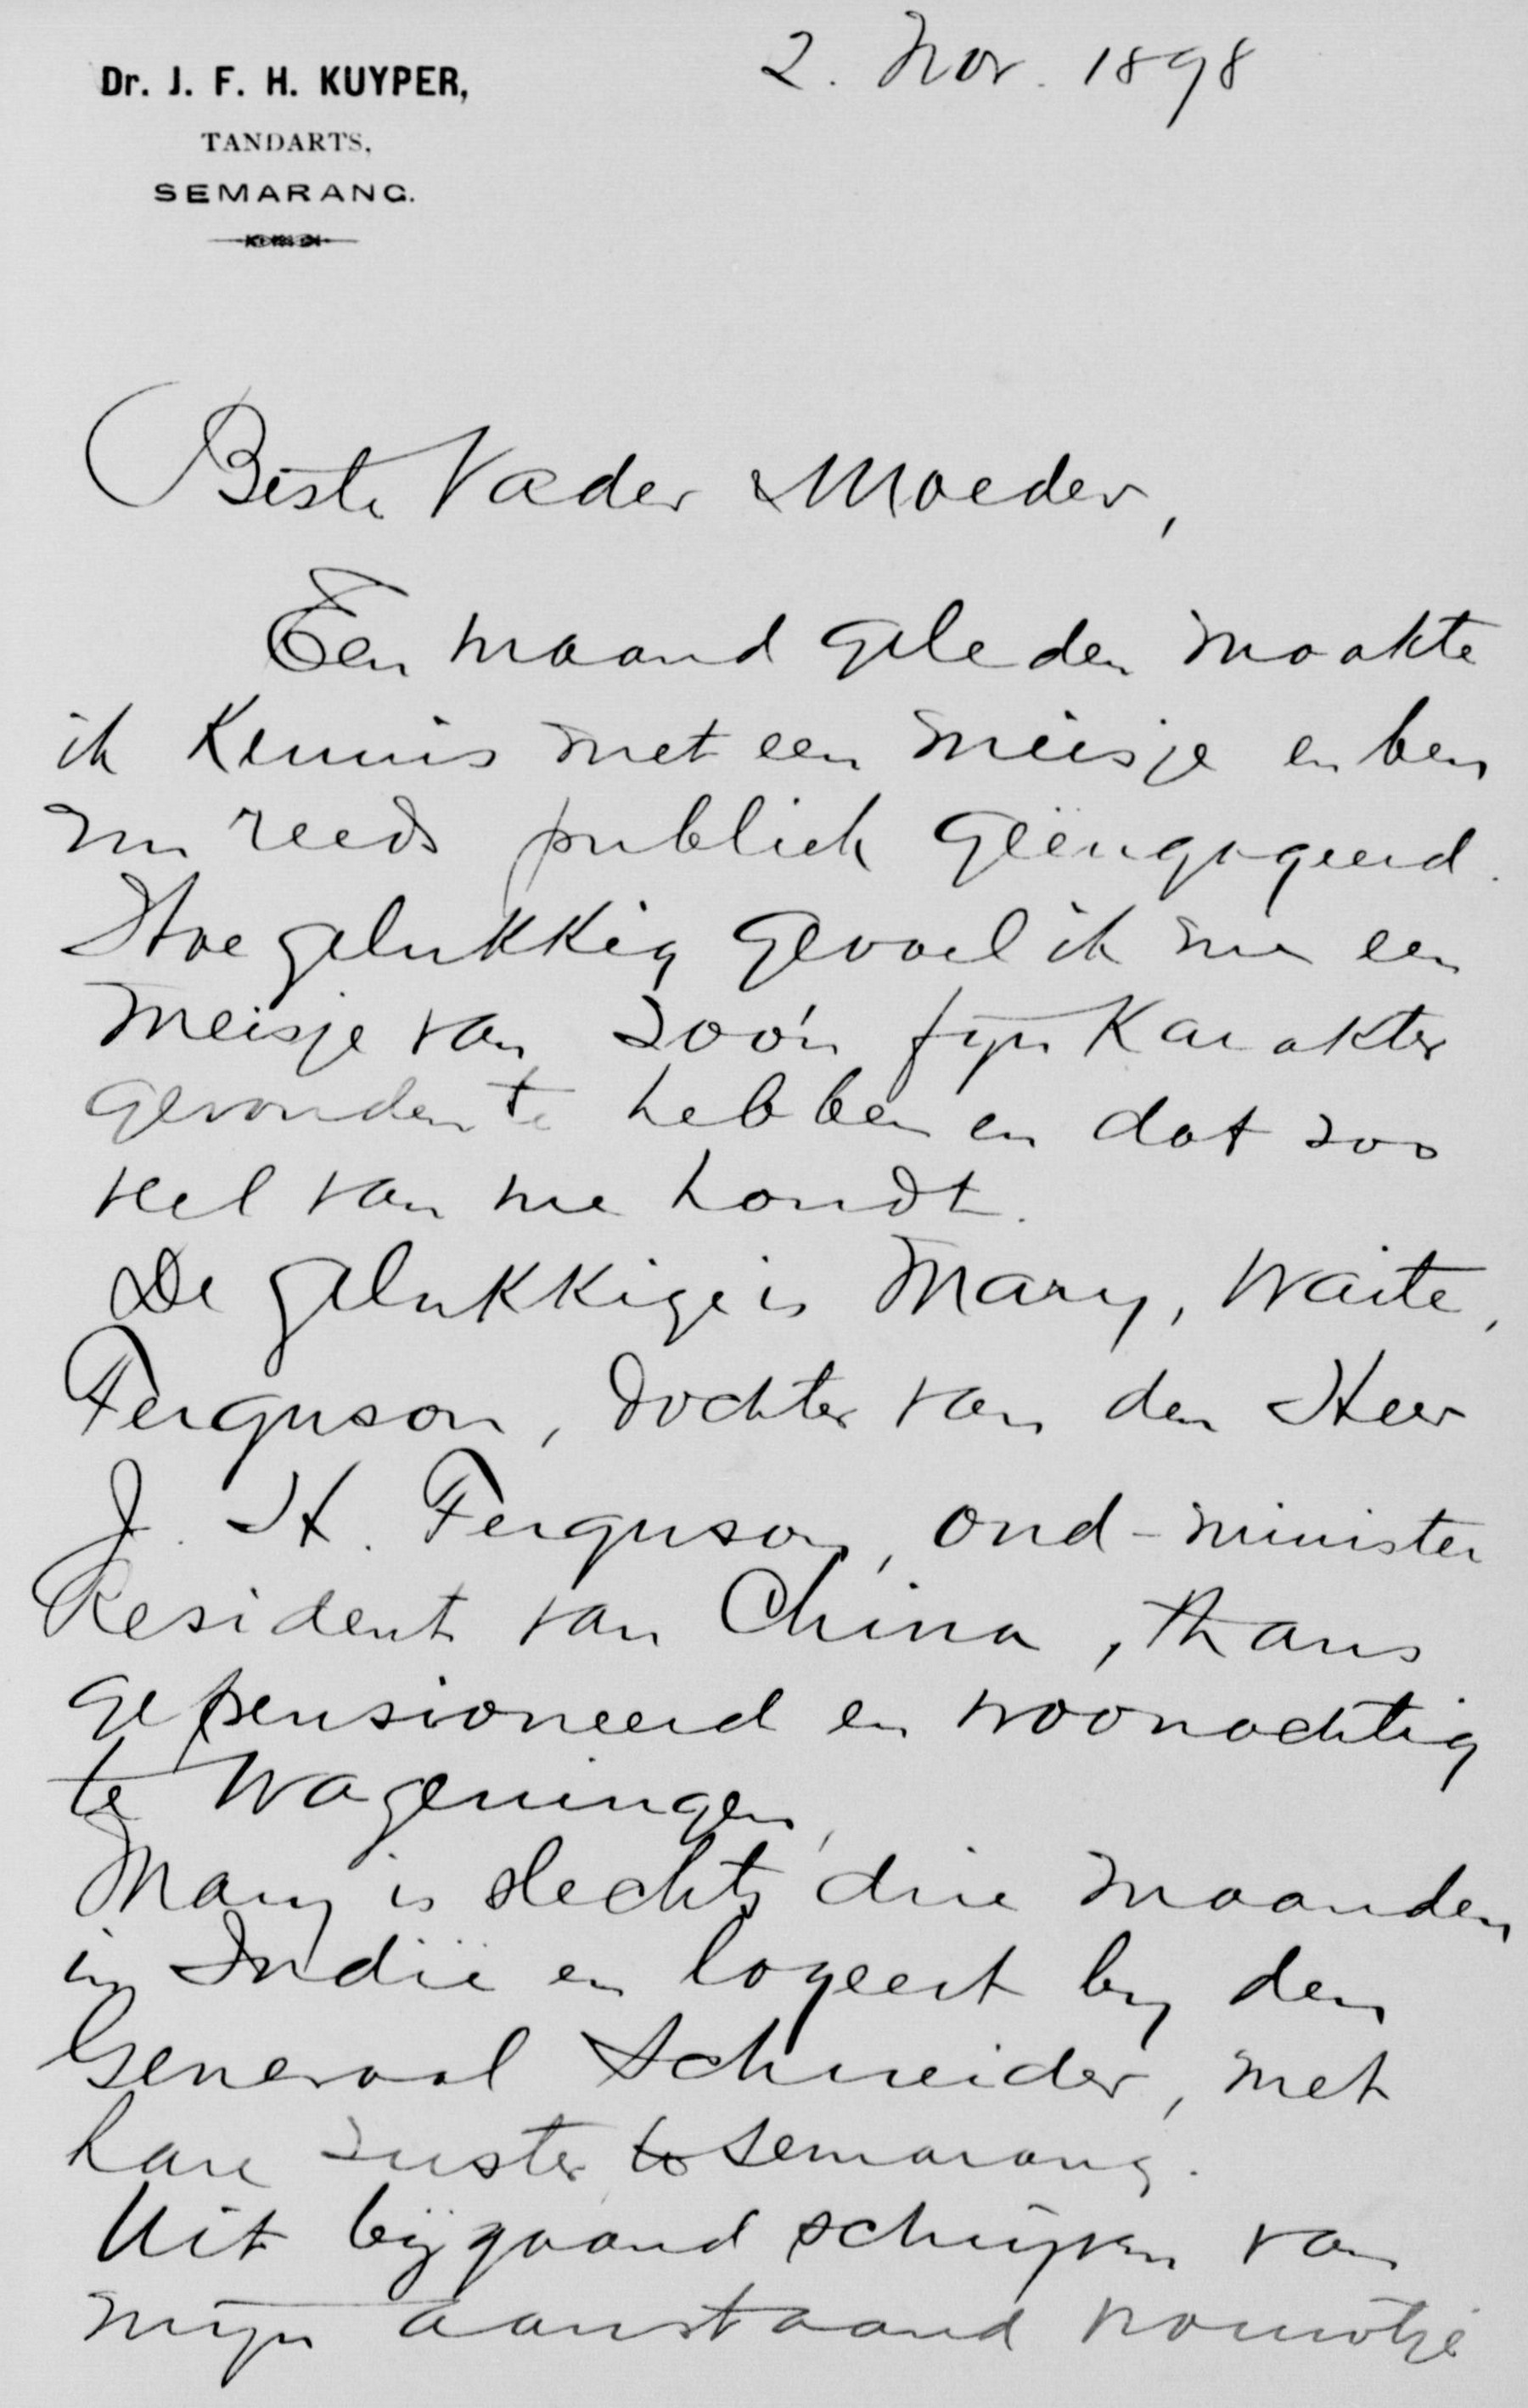 Dr. J. F. H. KUYPER,
TANDARTS,
SEMARANG.
2. Nov. 1898
Beste Vader & Moeder,
Een maand geleden maakte
ik Kennis met een meisje en ben
nu reeds publiek geëngageerd.
Hoe gelukkig gevoel ik me een
meisje van zoo'n fijn Karakter
gevonden te hebben en dat zoo
veel van me houdt.
De gelukkige is Mary, Waite,
Ferguson, dochter van den Heer
J. H. Ferguson, oud-minister
Resident van China, thans
gepensioneerd en woonachtig
te Wageningen,
Mary is slechts drie maanden
in Indië en logeert by den
Generaal Schneider, met
hare zuster te Semarang.
Uit bijgaand schrijven van
mijn aanstaand vrouwtje